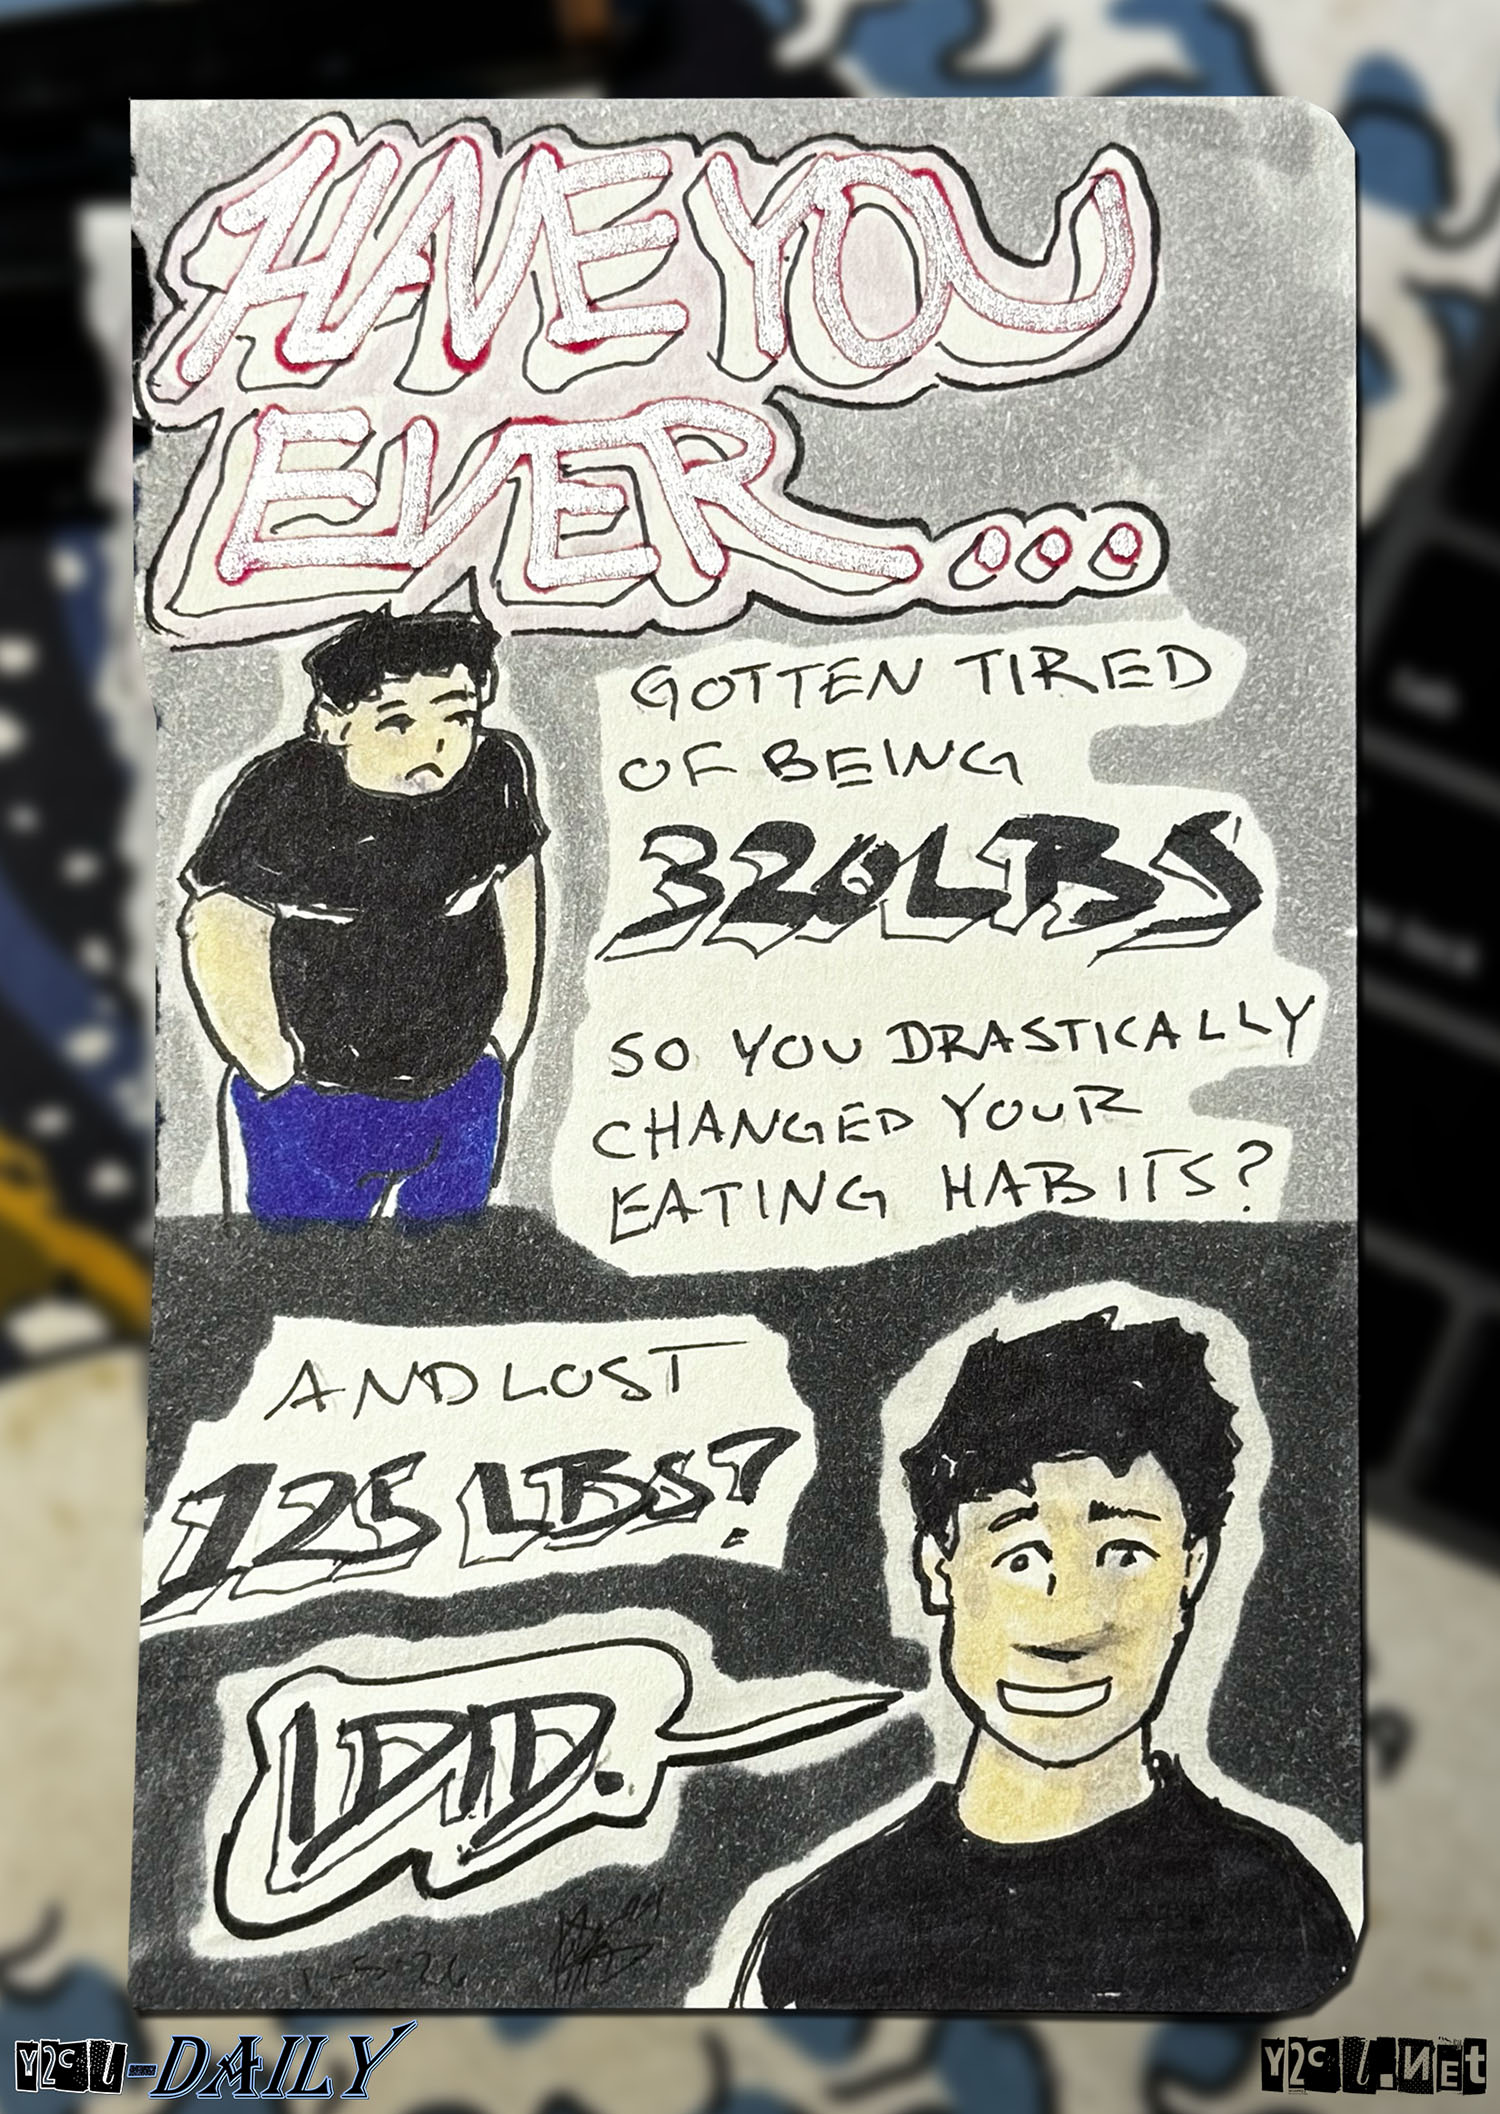 HAVE YOU
EVER...
GOTTEN TIRED
OF BEING
320LBS
SO YOU DRASTICALLY
CHANGED YOUR
EATING HABITS?
AND LOST
125 LBS?
I DID.
Y2CL-DAILY
Y2CL.NEt